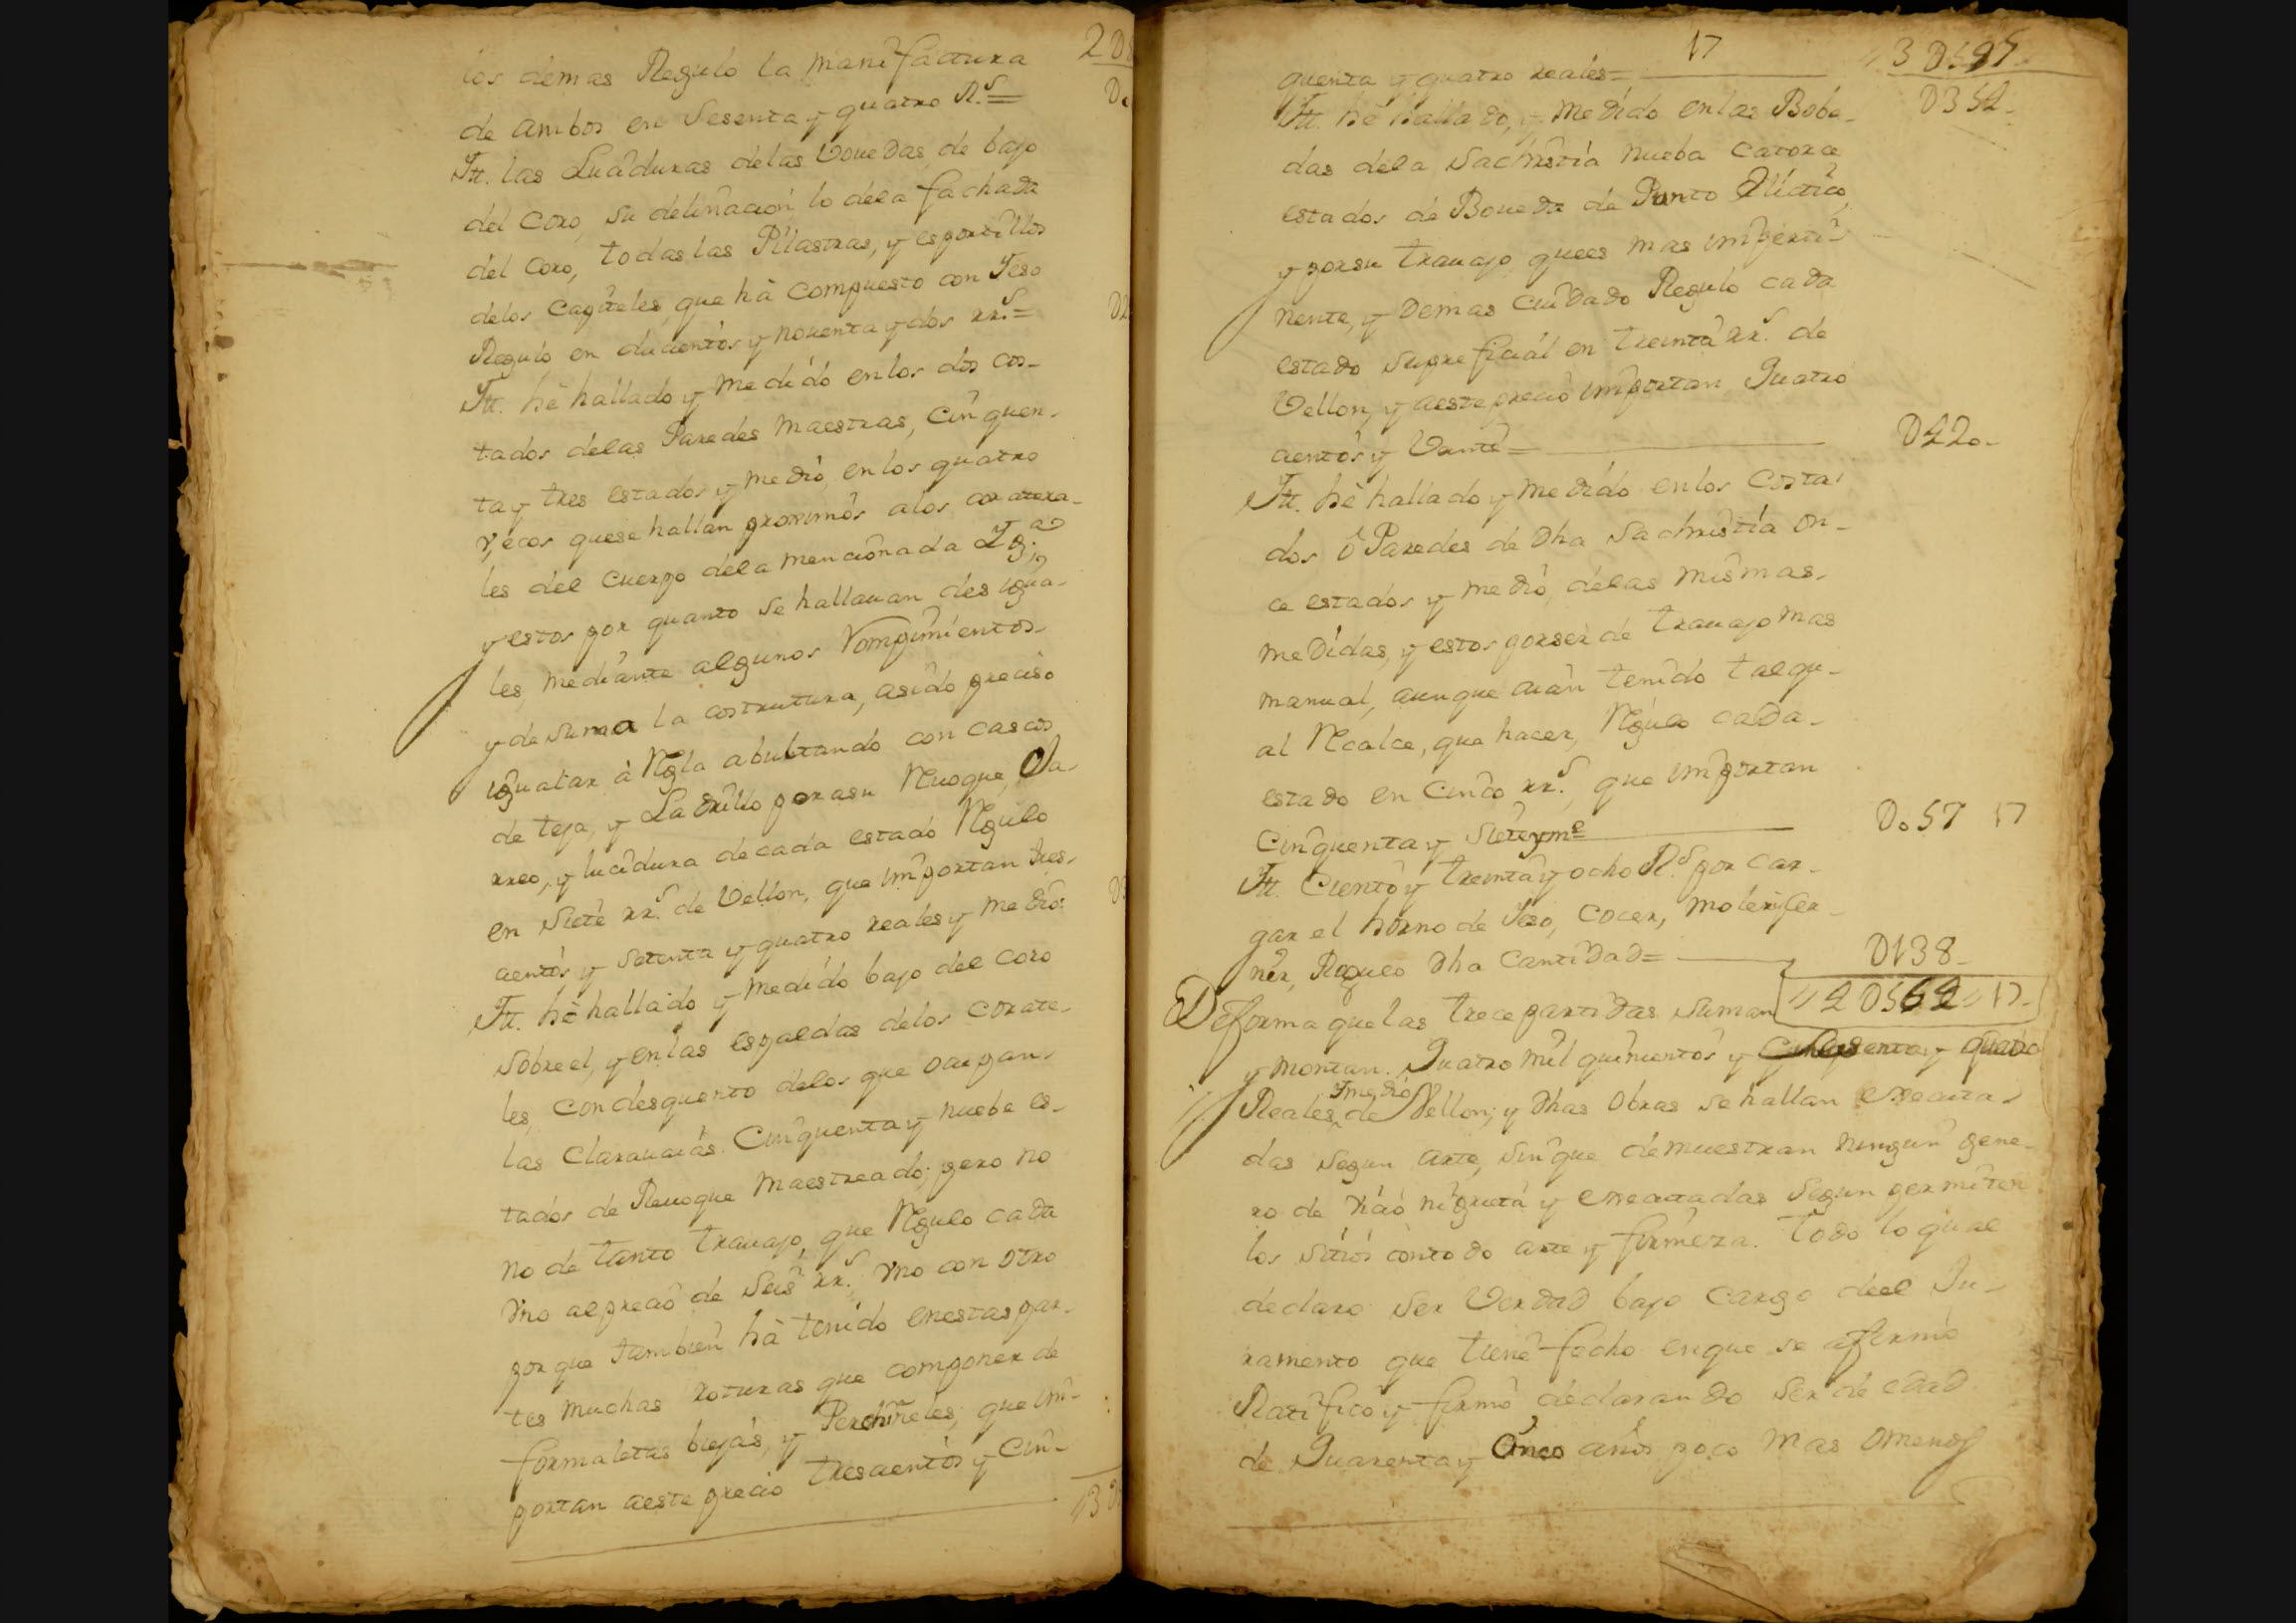 los demas Regulo la manifactura
de ambos en Sesenta y quatro R.s =
Itt. las Luciduras delas Vovedas de bajo
del Coro, su delineacion lo dela fachada
del Coro, todas las Pilastras, y esportillos
delos Capiteles, que hà compuesto con Yeso
Regulo en ducientos y noventa y dos rr.s =
Itt. hè hallado y medido enlos dos cos-
tados delas Paredes maestras, Cinquen-
ta y tres estados y medio, enlos quatro
que se hallan proximos alos colatera-
les del Cuerpo dela mencionada Ygª
y estos por quanto se hallavan des igua-
les, mediante algunos Rompimientos
y de suma la costrutura, asido preciso
igualar à Rgla abultando con cascos
de teja, y Ladrillo para su Rvoque, Ja-
rreo, y lucidura de cada estado Rgulo
en Siete rr.s de Vellon, que importan tres-
cientos y Setenta y quatro reales y medio:
Itt. hè hallado y medido bajo del coro
sobre el, y enlas espaldas delos Colate-
les, con desquento delos que ocupan
las Claravaias. Cinquenta y nuebe es-
tados de Revoque maestreado; pero no
no de tanto travajo, que Rgulo cada
vno al precio de Seis rr.s, vno con otro
por que tambien hà tenido en estas par-
tes muchas roturas que componer de
formaletas biejas, y Perchineles; que im-
portan aeste precio trescientos y Cin-
17
quenta y quatro reales =
D354
Itt. hè hallado, y medido enlas Bobe-
das dela Sachristia nueba catorce
estados de Boveda de Punto
y por su travajo que es mas imperti-
nente, y demas Cuidado Regulo cada
estado supreficial en treinta rr.s de
Vellon, y aeste precio importan Quatro
cientos y Veinte =
D420
Itt. hè hallado y medido enlos Costa-
dos ô Paredes de dha Sachristia on-
ce estados y medio, delas mismas
medidas, y estos por ser de travajo mas
manual, aunque aian tenido tal qu-
al Rcalce, que hacer, Rgulo cada
estado en Cinco rr.s, que importan
Cinquenta y Siete y m.o
Do57 17
Itt. Ciento y treinta y ocho R.s por car-
gar el horno de Yeso, cocer, moler y Cer-
ner, Regulo dha Cantidad =
D138
De forma que las trece partidas suman
4D562 17
y montan. Quatro mil quinientos y
Ymedio
Reales de Vellon; y dhas Obras se hallan executa-
das segun arte, sin que demuestran ningun gene-
ro de vicio ni grieta y executadas Segun permiten
los sitios con todo arte y firmeza. Todo lo qual
declaro ser Verdad bajo cargo deel Ju-
ramento que tiene fecho en que se afirmò
Ratifico y firmò declarando ser de edad
de Quarenta y Cinco años poco mas o menos